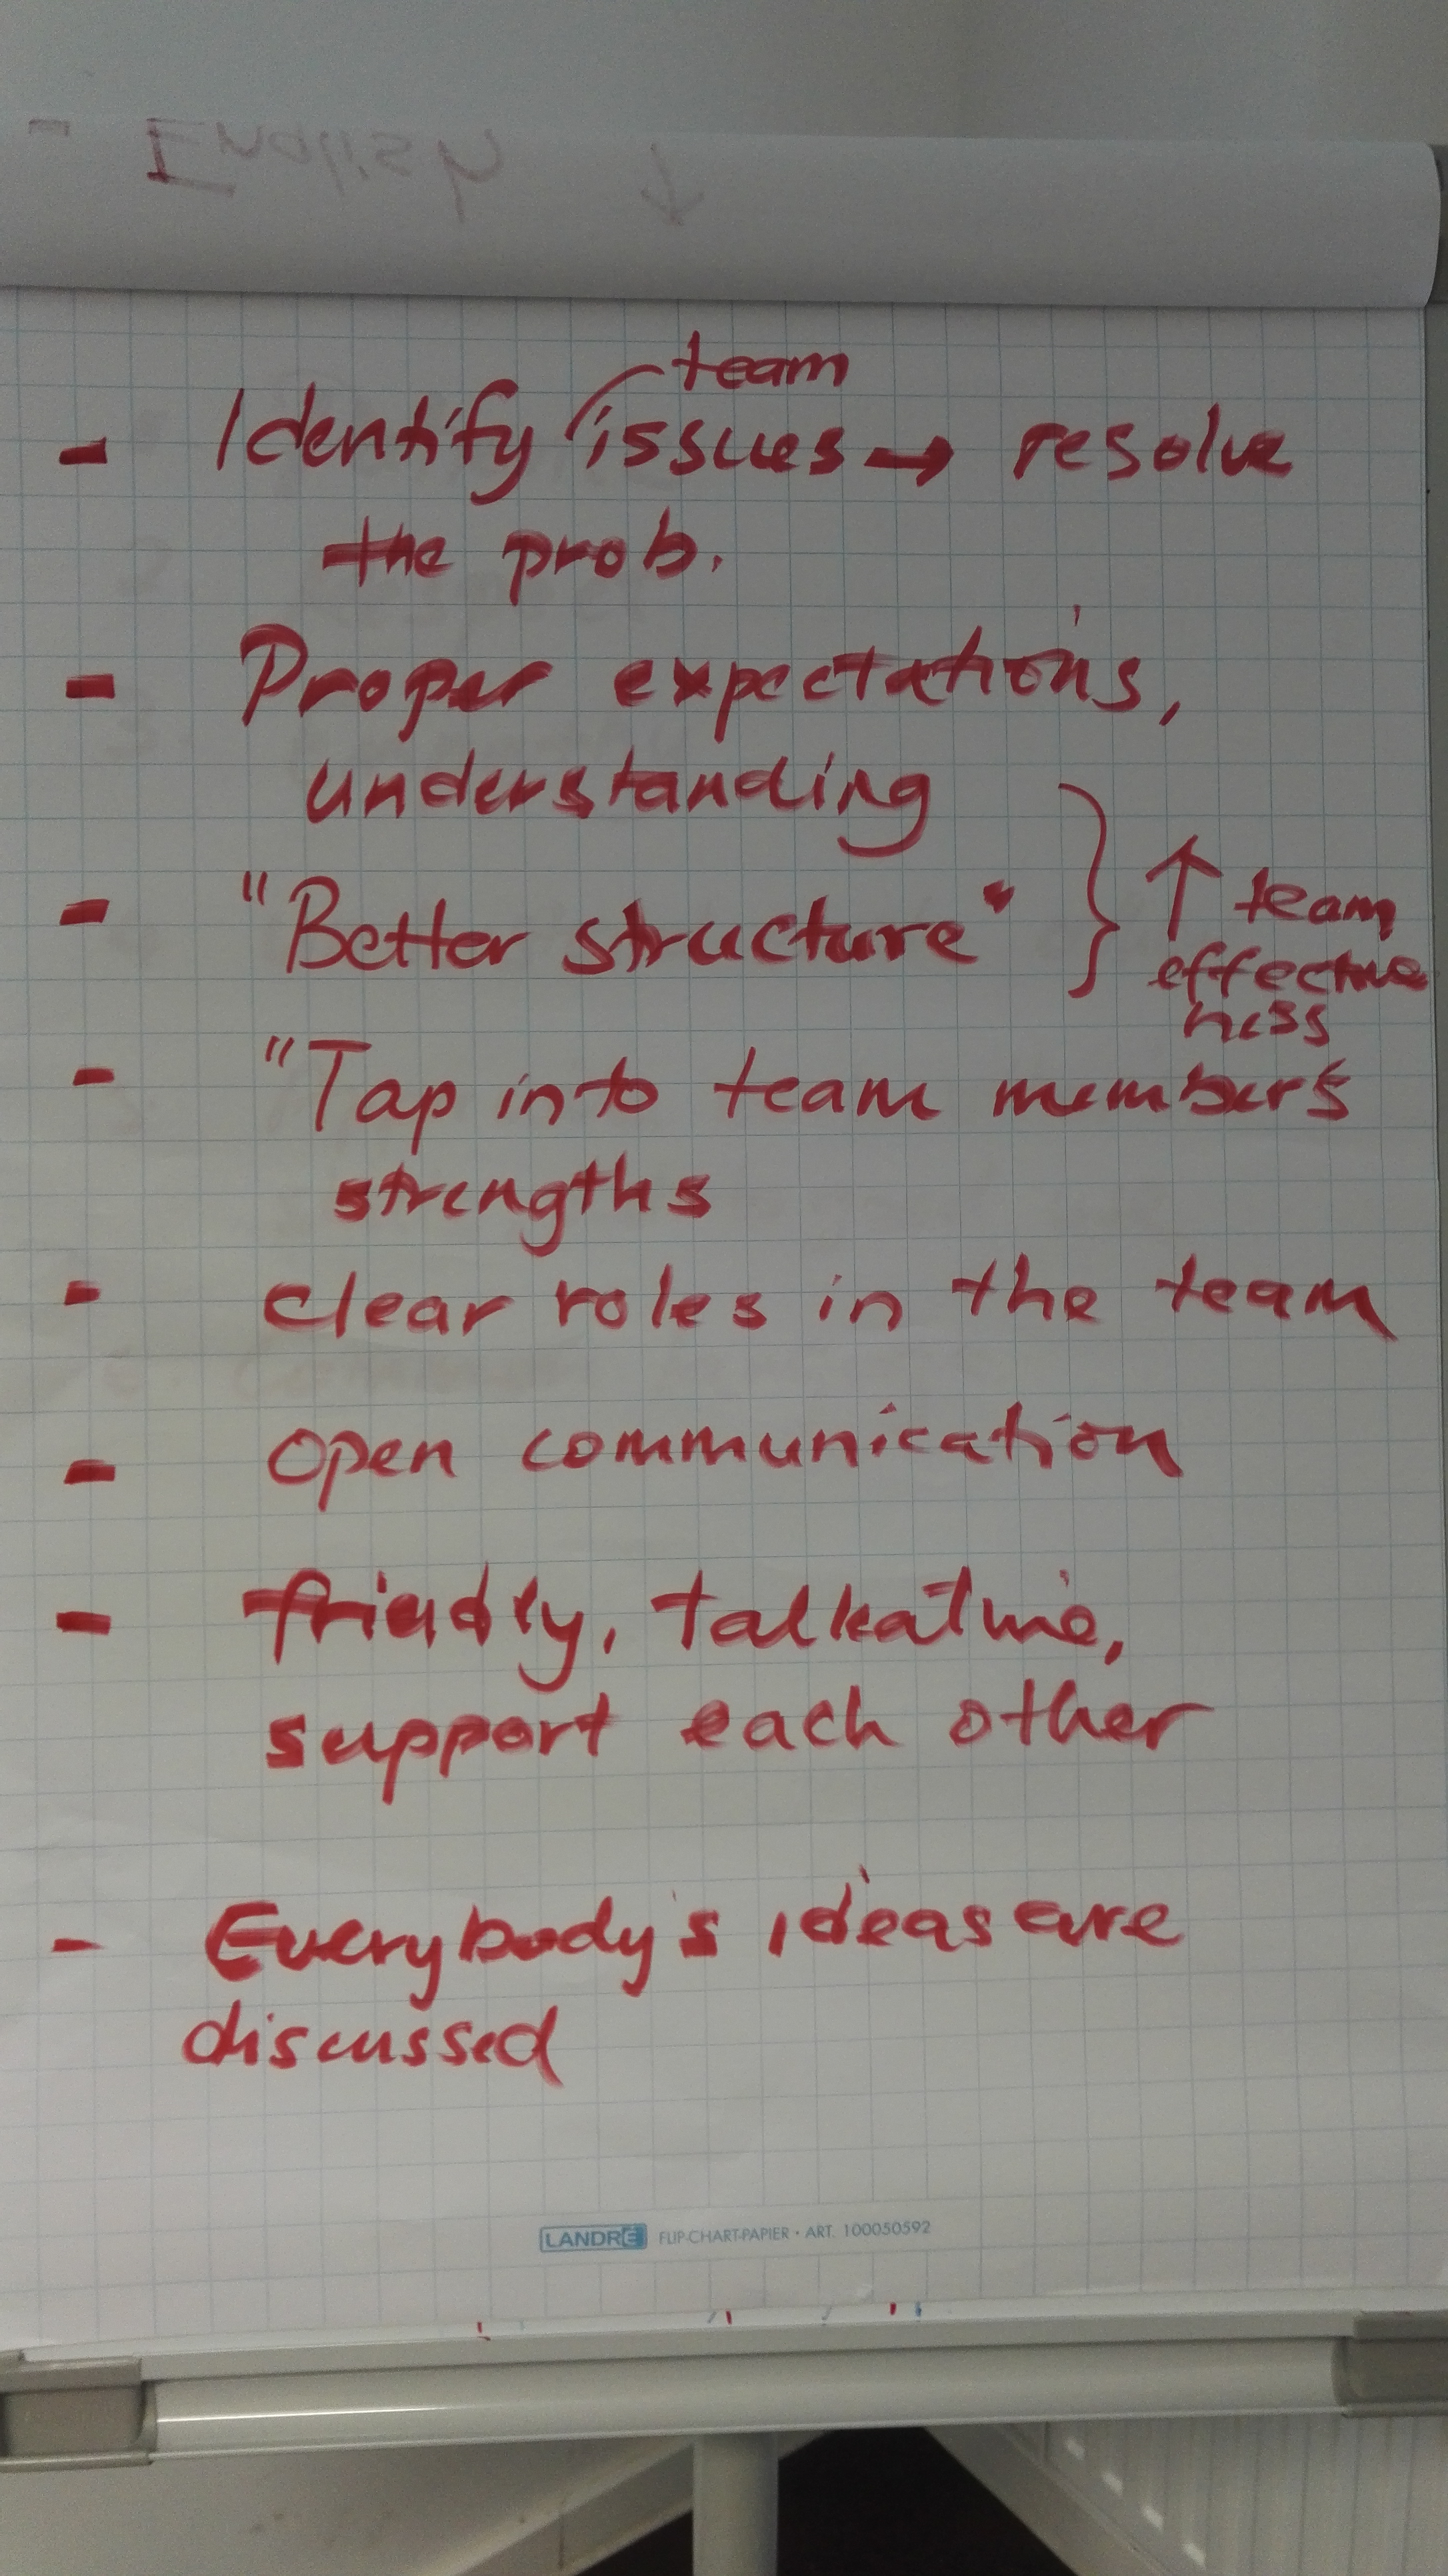 team
- Identify issues → resolve
the prob.
- Proper expectations,
understanding
- "Better structure"
↑ team
effective
ness
- "Tap into team members
strengths
- clear roles in the team
- open communication
- friendly, talkative,
support each other
- Everybody's ideas are
discussed
LANDRÉ FLIP-CHART-PAPIER • ART. 100050592